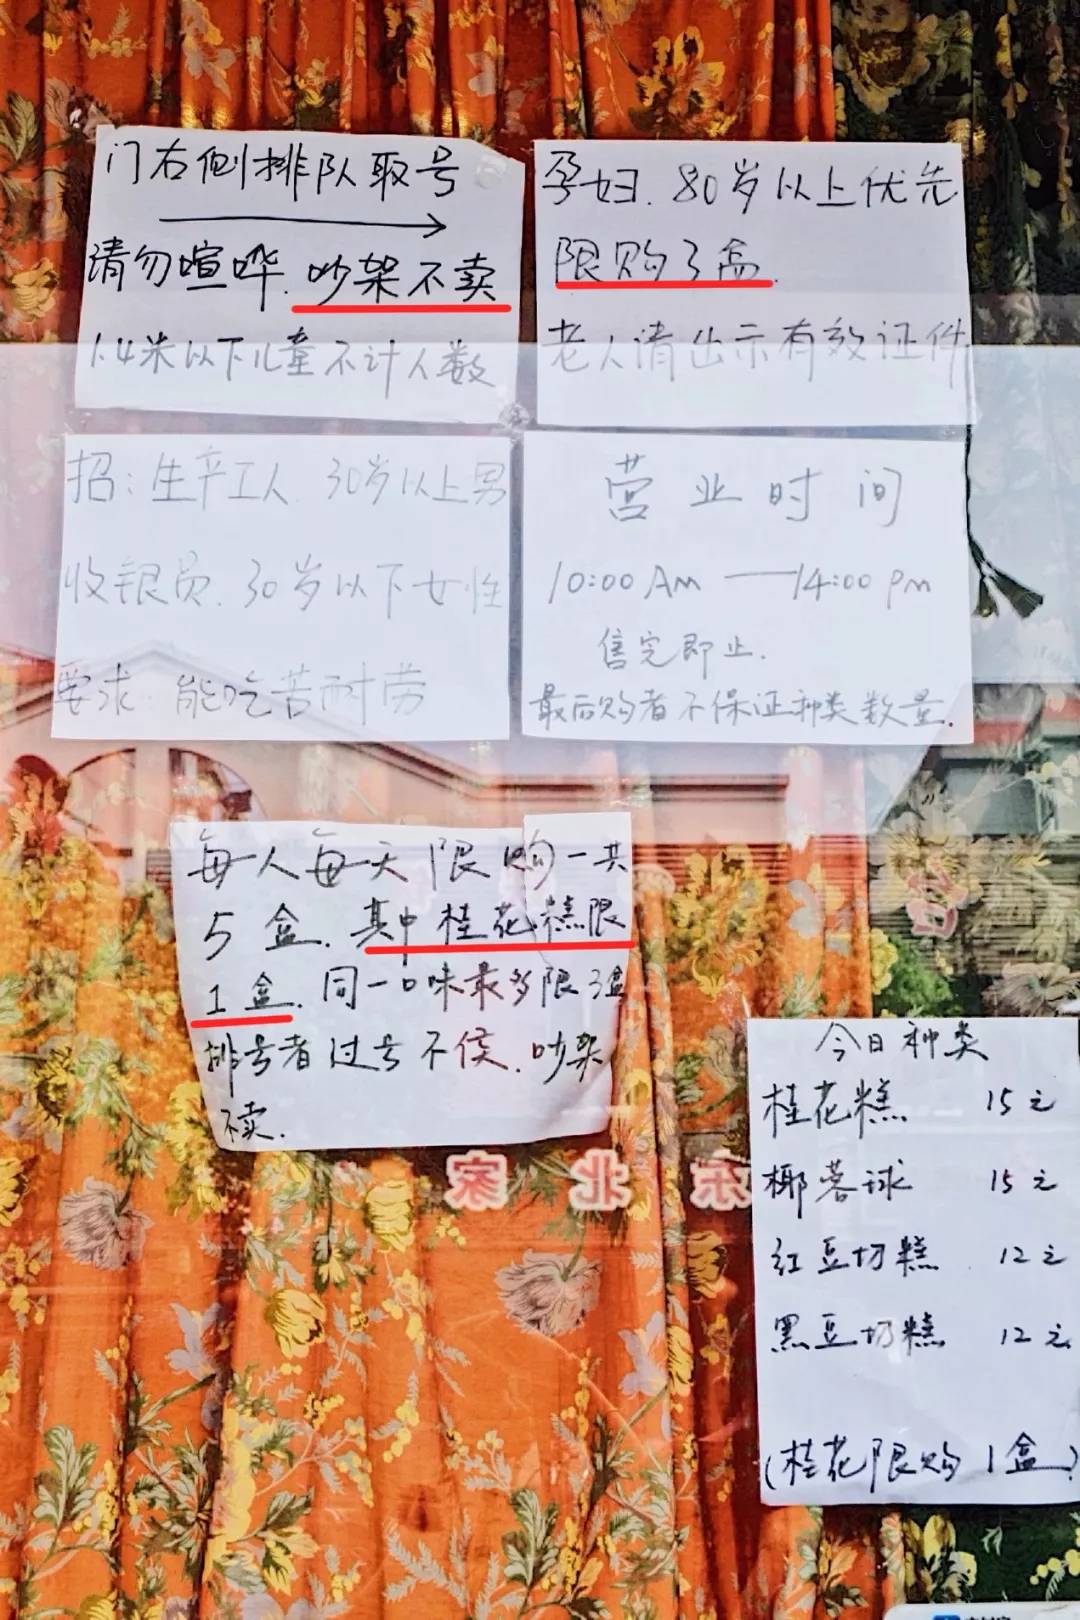 门右侧排队取号
请勿喧哗.吵架不卖
1.4米以下儿童不计人数
孕妇.80岁以上优先
限购3盒.
老人请出示有效证件
招:生产工人 30岁以上男
收银员.30岁以下女性
要求:能吃苦耐劳
营业时间
10:00 Am —14:00 pm
售完即止.
最后购者不保证种类数量.
每人每天限购一共
5盒.其中桂花糕限
1盒.同一口味最多限3盒
排号者过号不侯.吵架
不卖.
东北家
今日种类
桂花糕 15元
椰蓉球 15元
红豆切糕 12元
黑豆切糕 12元
(桂花限购1盒)